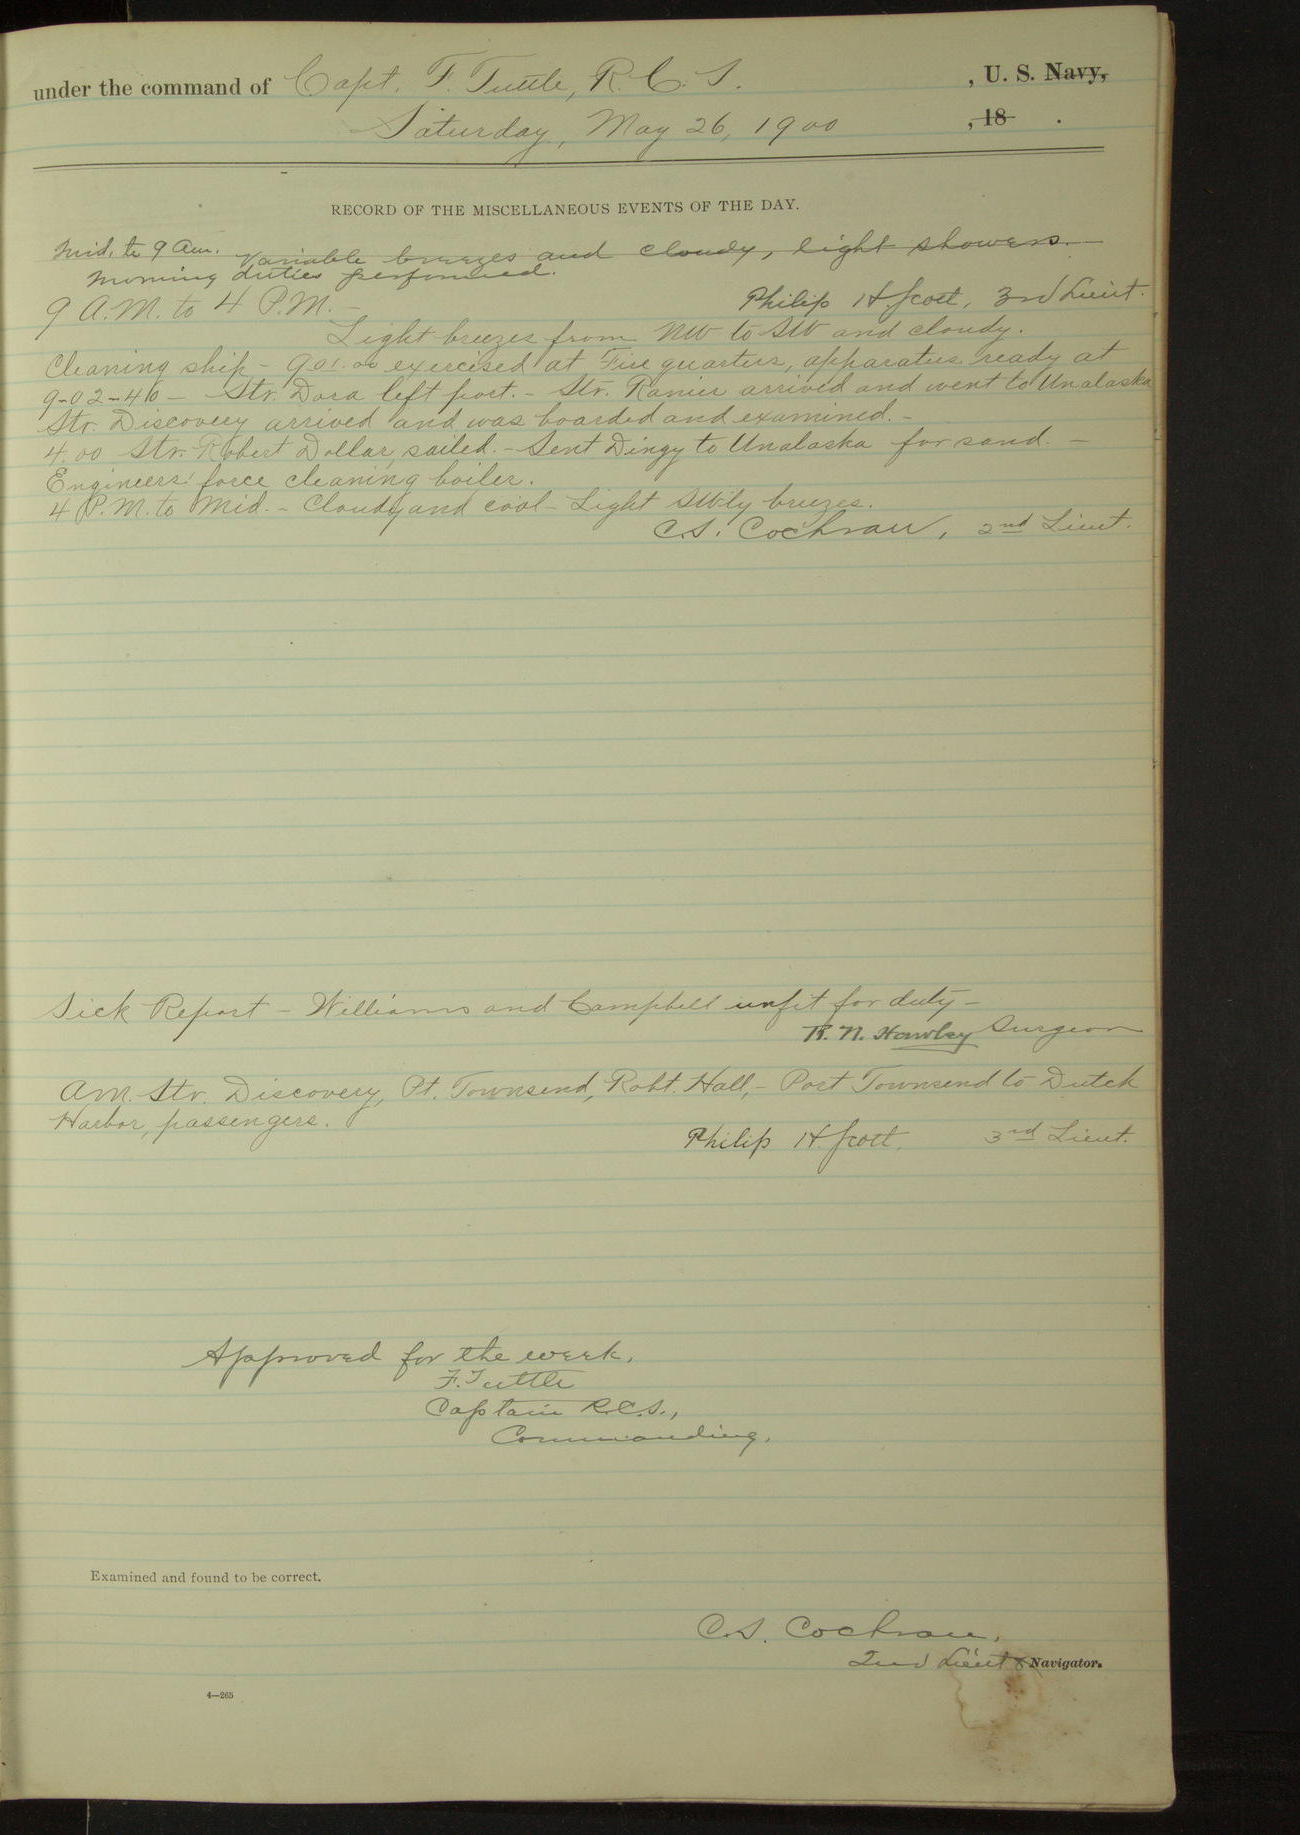 under the command of Capt. F. Tuttle, R. C. S. , U. S. Navy,
Saturday, May 26, 1900 , 18 .
RECORD OF THE MISCELLANEOUS EVENTS OF THE DAY.
Mid. to 9 am. Variable breezes and cloudy, light showers.
Morning duties performed.
Philip H. Scott, 3rd Lieut.
9 A.M. to 4 P.M. -
Light breezes from NW to SW and cloudy.
Cleaning ship - 9 01.00 exercised at Fire quarters, apparatus ready at
9-02-46 - Str. Dora left port. - Str. Ranier arrived and went to Unalaska
Str. Discovery arrived and was boarded and examined. -
4.00 Str. Robert Dollar, sailed. - Sent Dingy to Unalaska for sand. -
Engineers' force cleaning boiler.
4 P.M. to Mid. - Cloudy and cool - Light SW'ly breezes.
C.S. Cochran, 2nd Lieut.
Sick Report - Williams and Campbell unfit for duty -
R. N. Hawley Surgeon
Am. Str. Discovery, Pt. Townsend, Robt. Hall, - Port Townsend to Dutch
Harbor, passengers.
Philip H. Scott. 3rd Lieut.
Approved for the week.
F. Tuttle
Captain R.C.S.,
Commanding.
Examined and found to be correct.
C.S. Cochran,
2nd Lieut & Navigator.
4—265